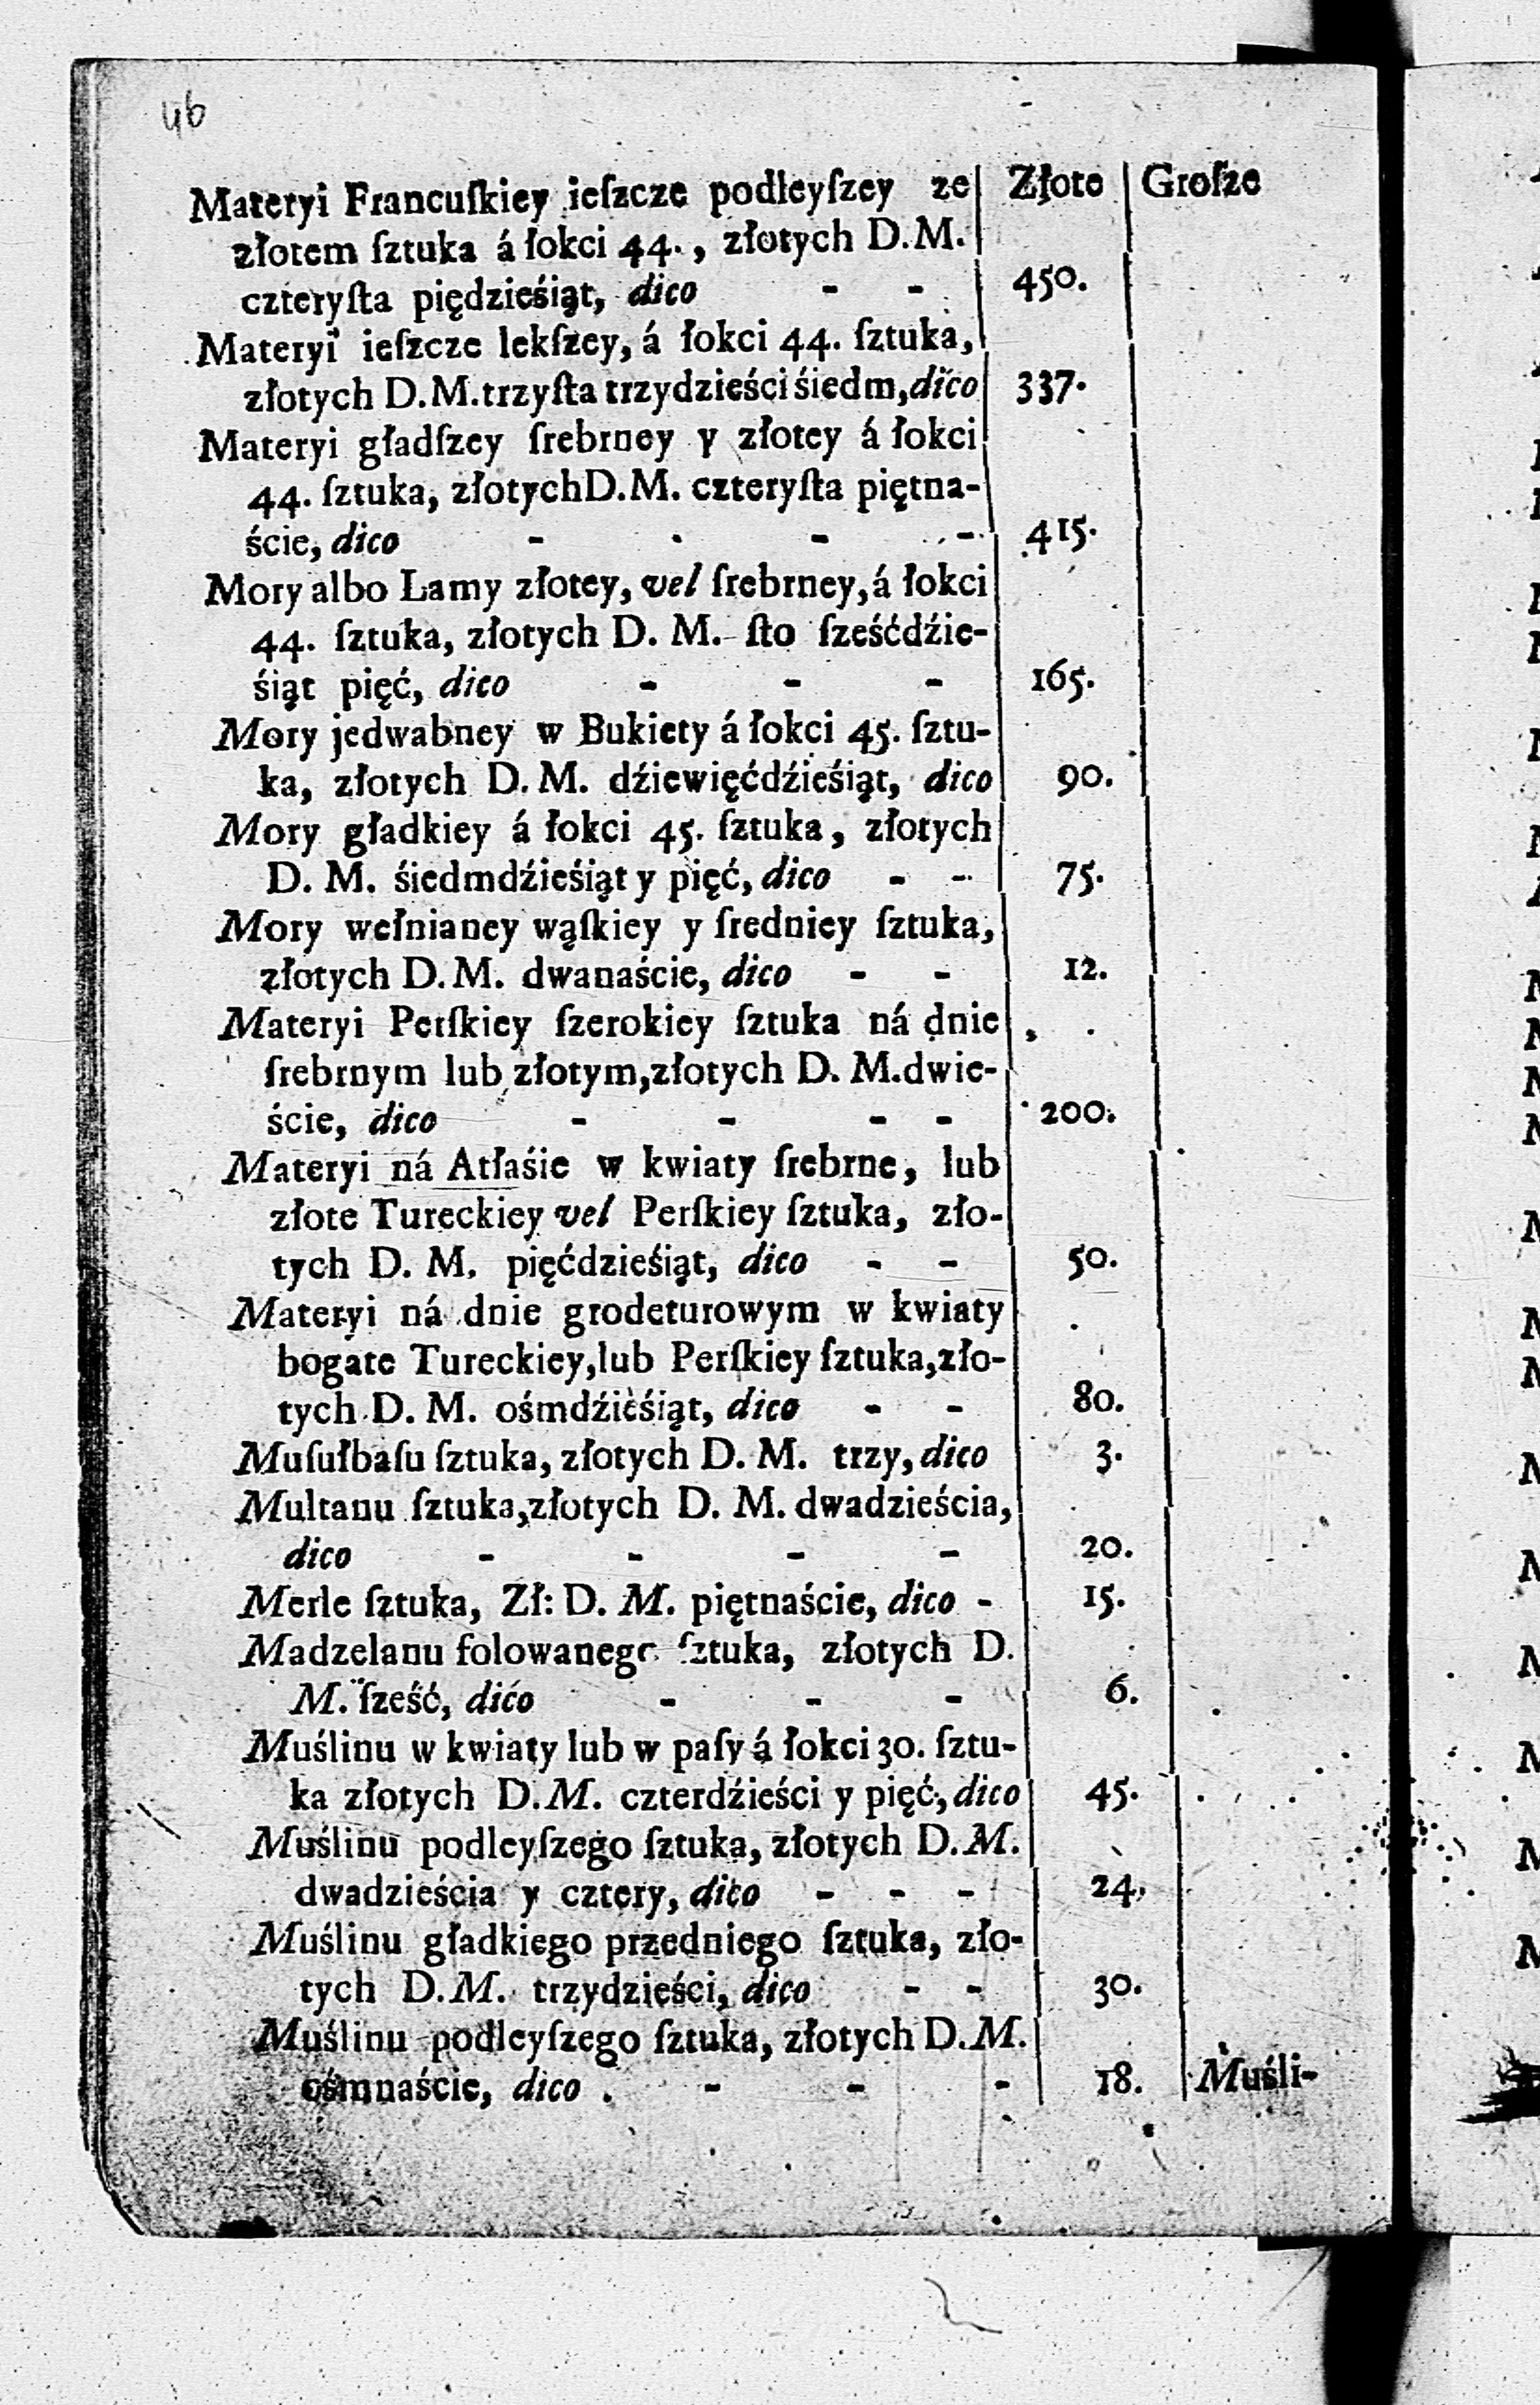 46
Materyi Francuſkiey ieſzcze podleyſzey ze | Złote | Groſze
złotem ſztuka á łokci 44., złotych D.M.
czteryſta piędzieśiąt, dico - - 450.
Materyi ieſzcze lekſzey, á łokci 44. ſztuka,
złotych D.M. trzyſta trzydzieści śiedm, dico 337.
Materyi gładſzey ſrebrney y złotey á łokci
44. ſztuka, złotych D.M. czteryſta piętna-
ście, dico - - - - 415.
Mory albo Lamy złotey, vel ſrebrney, á łokci
44. ſztuka, złotych D. M. ſto ſześćdźie-
śiąt pięć, dico - - - 165.
Mory jedwabney w Bukiety á łokci 45. ſztu-
ka, złotych D. M. dźiewięćdźieśiąt, dico 90.
Mory gładkiey á łokci 45. ſztuka, złotych
D. M. śiedmdźieśiąt y pięć, dico - - 75.
Mory wełnianey wąſkiey y ſredniey ſztuka,
złotych D.M. dwanaście, dico - - 12.
Materyi Perſkiey ſzerokiey ſztuka ná dnie
ſrebrnym lub złotym, złotych D. M. dwie-
ście, dico - - - - 200.
Materyi ná Atłaśie w kwiaty ſrebrne, lub
złote Tureckiey vel Perſkiey ſztuka, zło-
tych D. M. pięćdzieśiąt, dico - - 50.
Materyi ná dnie grodeturowym w kwiaty
bogate Tureckiey, lub Perſkiey ſztuka, zło-
tych D. M. ośmdźieśiąt, dico - - 80.
Muſułbaſu ſztuka, złotych D. M. trzy, dico 3.
Multanu ſztuka, złotych D. M. dwadzieścia,
dico - - - - 20.
Merle ſztuka, Zł: D. M. piętnaście, dico - 15.
Madzelanu folowanego ſztuka, złotych D.
M. ſześć, dico - - - 6.
Muślinu w kwiaty lub w paſy á łokci 30. ſztu-
ka złotych D.M. czterdźieści y pięć, dico 45.
Muślinu podleyſzego ſztuka, złotych D.M.
dwadzieścia y cztery, dico - - - 24,
Muślinu gładkiego przedniego ſztuka, zło-
tych D.M. trzydzieści, dico - - 30.
Muślinu podleyſzego ſztuka, złotych D.M.
ośmnaście, dico . - - - 18.
Muśli-